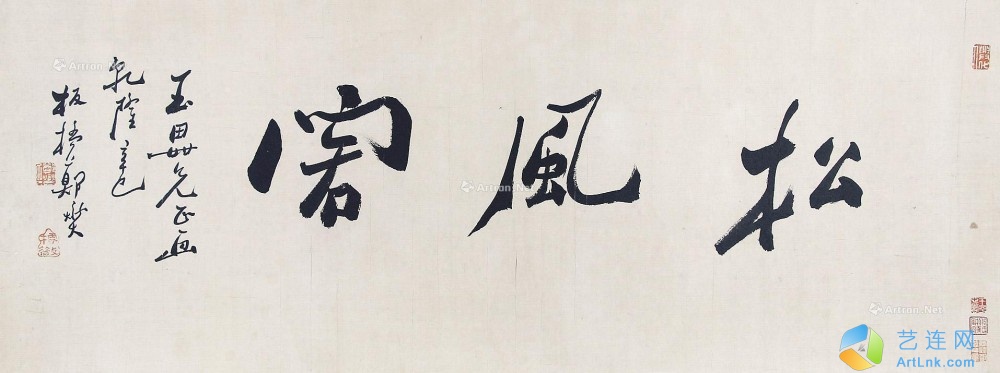 松風
玉田兄正画
乾隆辛巳
板橋鄭燮
Artron.Net
Artron.Net
Artron.Net
艺连网
ArtLnk.com